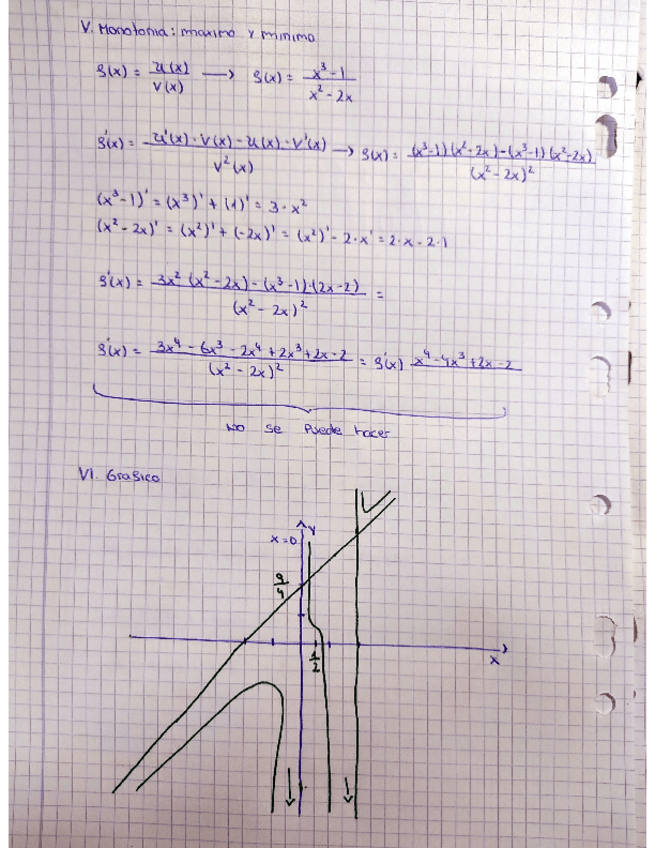 V. Monotonia: maximo y minimo
f(x) = u(x)/v(x) → f(x) = x³-1/x²-2x
f'(x) = u'(x)·v(x)-u(x)·v'(x)/v²(x) → f(x) = (x³-1)(x²-2x)-(x³-1)(x²-2x)/(x²-2x)²
(x³-1)' = (x³)' + (1)' = 3·x²
(x²-2x)' = (x²)' + (-2x)' = (x²)' - 2·x' = 2·x-2·1
f'(x) = 3x²(x²-2x)-(x³-1)·(2x-2)/(x²-2x)² =
f'(x) = 3x⁴-6x³-2x⁴+2x³+2x-2/(x²-2x)² = f'(x) x⁴-4x³+2x-2
No se puede hacer
VI. Grafico
y
x=0
9/4
1/2
x